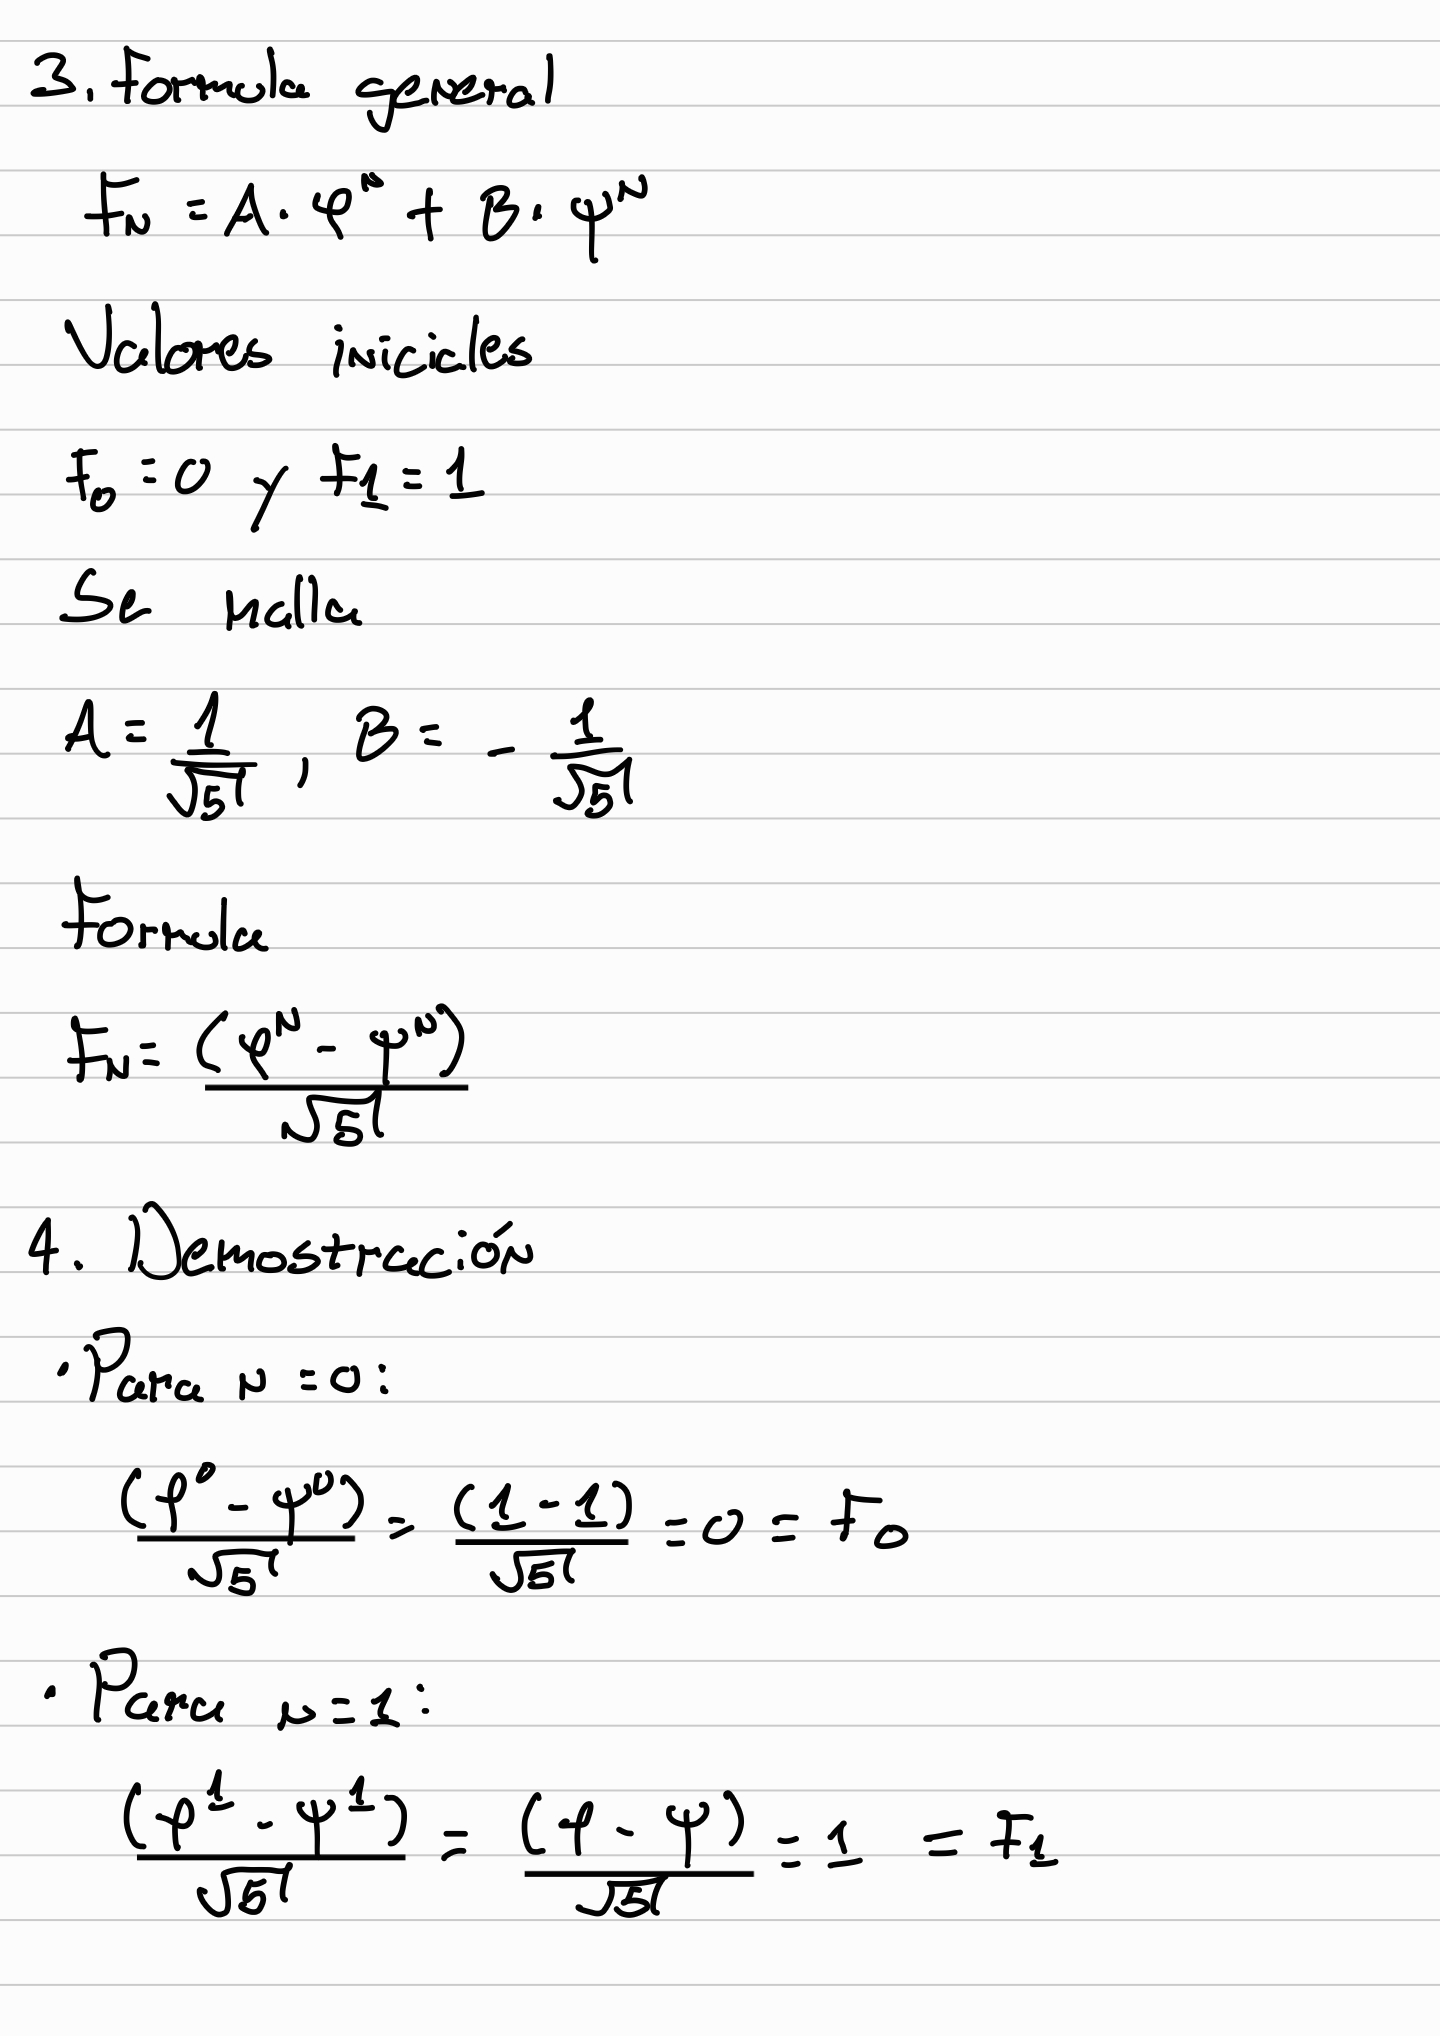 3. Formula general
Fₙ = A · φⁿ + B · ψⁿ
Valores iniciales
F₀ = 0 y F₁ = 1
Se halla
A = 1/√5 , B = - 1/√5
Formula
Fₙ = (φⁿ - ψⁿ)/√5
4. Demostración
· Para n = 0:
(φ⁰ - ψ⁰)/√5 = (1 - 1)/√5 = 0 = F₀
· Para n = 1:
(φ¹ - ψ¹)/√5 = (φ - ψ)/√5 = 1 = F₁